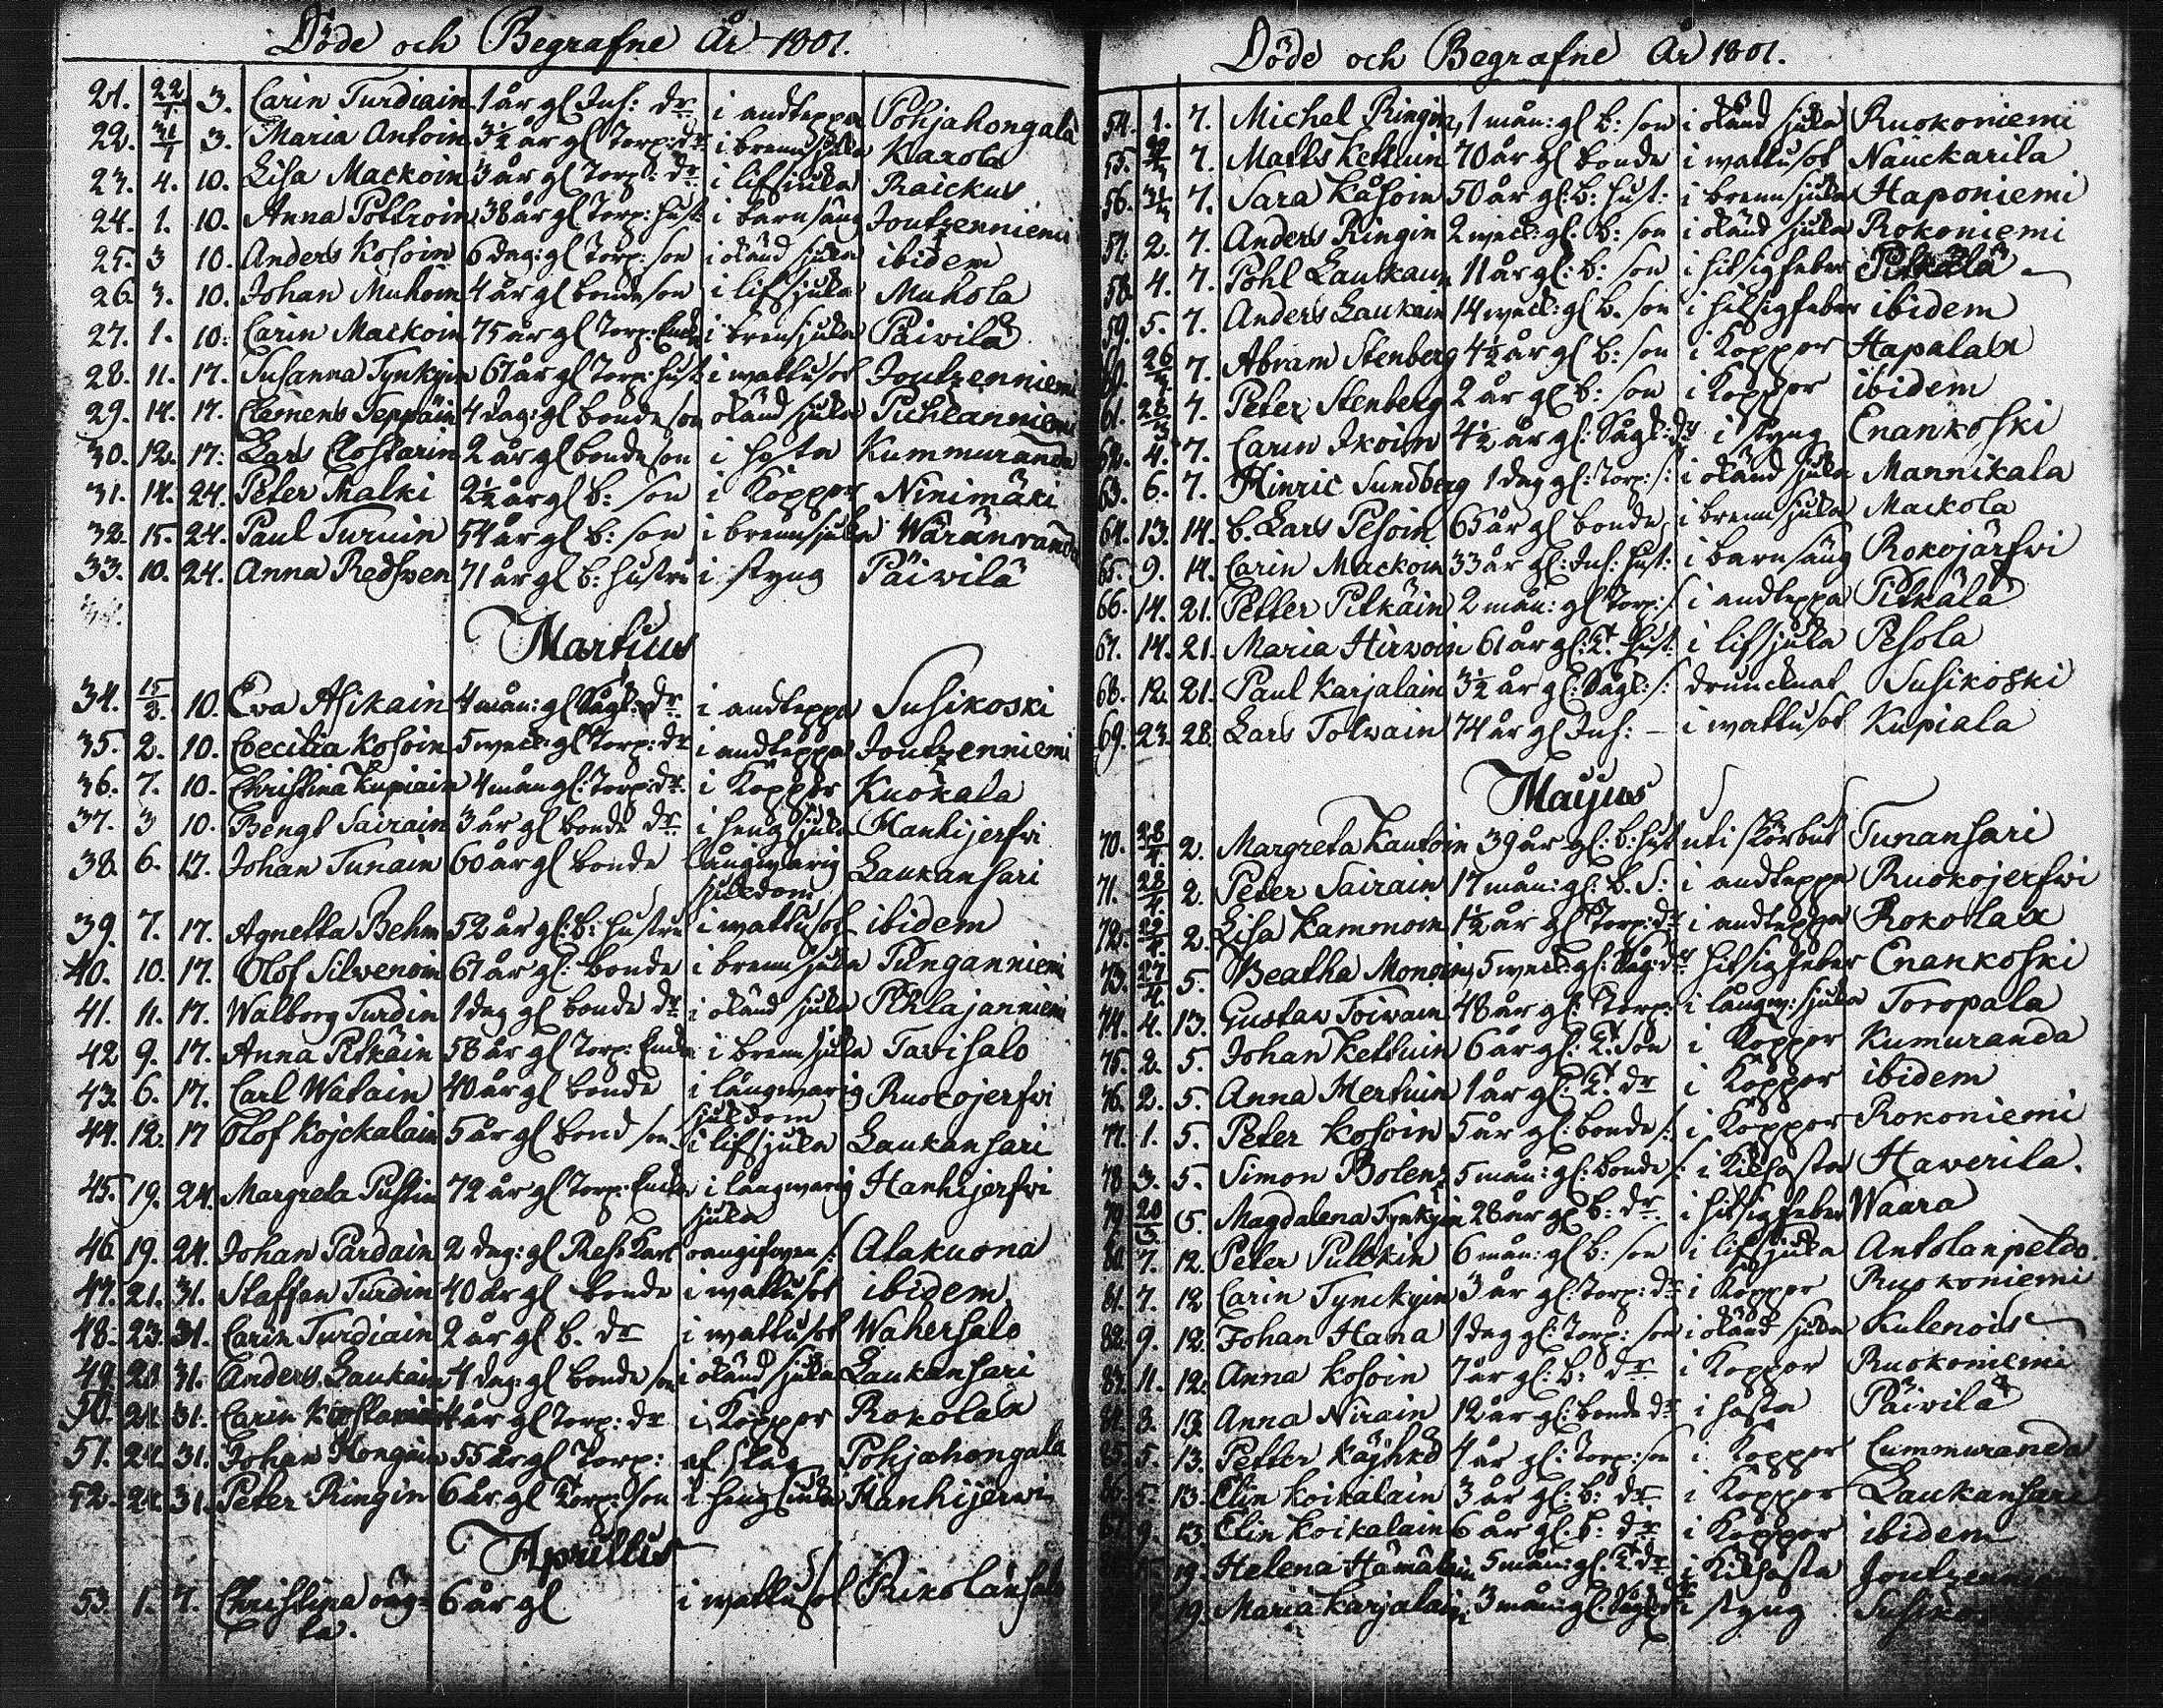 Döde och Begrafne År 1801.
21. 22/1. 3. Carin Turdiain 1 år gl Inh: dr i andteppa Pohjahongala
22. 31/1 3. Maria Antoin 3½ år gl Torp: dr i brennsjuka Karola
23. 4. 10. Lisa Mackoin 3 år gl Torp: dr i lifsjuka Raickus
24. 1. 10. Anna Pottroin 38 år gl Torp: hust: i barnsäng Joutzenniemi
25. 3 10. Anders Kosoin 6 dag: gl Torp: son i okänd sjuka ibidem
26. 3. 10. Johan Muhoin 4 år gl bondeson i lifsjuka Muhola
27. 1. 10: Carin Mackoin 75 år gl Torp: Enka i brensjuka Päivilä
28. 11. 17. Susanna Tynkyin 67 år gl Torp: hust: i wattusot Joutzenniemi
29. 14. 17. Clemens Teppäin 4 dag: gl bondeson okänd sjuka Pihlanniemi
30. 12. 17: Lars Clostarin 2 år gl bondeson i hosta Kummuranda
31. 14. 24. Peter Thalki 2½ år gl b: son i Koppor Ninimäki
32. 15. 24. Paul Turuin 54 år gl b: son i brennsjuka Wäränranda
33. 10. 24. Anna Redsven 71 år gl b: hustru i styng Päivilä
Martius
34. 15/2. 10. Eva Asikain 4 mån: gl Sågk: dr i andteppa Susikoski
35. 2. 10. Coecilia Kosoin 5 weck: gl Torp: dr i andteppa Joutzenniemi
36. 7. 10. Christina Kupiain 4 mån gl: Torp: dr i Koppor Kuokala
37. 3 10. Bengt Sairain 3 år gl bonde dr i hengsjuka Hanhijerfvi
38. 6. 17. Johan Tunain 60 år gl bonde långwarig Laukansari
sjukdom
39. 7. 17. Agnetta Behm 52 år gl: b: hustru i wattusot ibidem
40. 10. 17. Olof Silvenoin 67 år gl: bonde i brennsjuka Tunganniemi
41. 11. 17. Walborg Turdin 1 dag gl bonde dr i okänd sjuka Pihlajanniemi
42 9. 17. Anna Pitkäin 58 år gl Torp: Enka i brennsjuka Tavisalo
43. 6. 17. Carl Watain 40 år gl bonde i långwarig Ruocojerfvi
sjukdom
44. 12. 17 Olof Kojckalain 5 år gl bond son i lifsjuka Laukansari
45. 19. 24. Margreta Pustin 72 år gl Torp: Enka i långwarig Hanhijerfvi
sjuka
46. 19. 24. Johan Pardain 2 dag: gl Alakuona
47. 21. 31. Staffan Turdin 40 år gl bonde i wattusot ibidem
48. 23. 31. Carin Turdiain 2 år gl b. dr i wattusot Wahersalo
49. 28. 31. Anders Laukain 4 dag: gl bonde son i okänd sjuka Laukansari
50. 21. 31. Carin år gl Torp: dr i Koppor Rokolax
51. 21. 31. Johan Hongain 55 år gl Torp: af slag Pohjahongala
52. 21. 31. Peter Ringin 6 år gl Torp: son i hengsjuka Hanhijerwi
Aprillis
53. 1. 7. Christina oäg= 6 år gl i wattusot Rikolansalo
ta.
Döde och Begrafne År 1801.
54. 1. 7. Michel Ringin, 1 mån: gl b: son i okänd sjuka Ruokoniemi
55. 7. Matts Kettuin 70 år gl bonde i wattusot Nauckarila
56. 31/3 7. Sara Kåsoin 50 år gl: b: hust: i brennsjuka Haponiemi
57. 2. 7. Anders Ringin 2 weck: gl: b: son i okänd sjuka Rokoniemi
58. 4. 7. Pohl Laukain 11 år gl: b: son i hitsigfeber Pitkälä
59. 5. 7. Anders Laukain 14 weck: gl b. son i hitsigfeber ibidem
60. 26/3 7. Abram Stenberg 4½ år gl b: son i Koppor Hapalax
61. 28/3 7. Peter Stenberg 2 år gl b: son i Koppor ibidem
62. 4. 7. Carin Ikoin 4½ år gl: Sågk: dr i styng Enankoski
63. 6. 7. Hinric Sundberg 1 dag gl: Torp: s: i okänd sjuka Mannikala
64. 13. 14. b. Lars Pesoin 65 år gl bonde i brennsjuka Mackola
65. 9. 14. Carin Mackoin 33 år gl: Inh: hust: i barnsäng Rokojärfvi
66. 14. 21. Petter Pitkäin 2 mån: gl Torp: s: i andteppa Pitkälä
67. 14. 21. Maria Hirvoin 61 år gl: T: hust: i lifsjuka Pesola
68. 12. 21. Paul Karjalain 3½ år gl: Sågk: s: druncknat Susikoski
69. 23. 28. Lars Tolvain 74 år gl Inh: – i wattusot Kupiala
Mayus
70. 28/4. 2. Margreta Kautoin 39 år gl: b: hust uti skörbut Tunansari
71. 28/4. 2. Peter Sairain 17 mån: gl: b. S: i andteppa Ruokojerfvi
72. 29/4. 2. Lisa Kammoin 1½ år gl Torp: dr i andteppa Rokolax
73. 27/4. 5. Beatha Monoin, 5 weck: gl: Såg: dr hitsigfeber Enankoski
74. 4. 13. Gustav Toivain 48 år gl: Torp: i långw: sjuka Toropala
75. 2. 5. Johan Kettuin 6 år gl: T. Son i Koppor Kumuranda
76. 2. 5. Anna Mertuin 1 år gl: T. dr i Koppor ibidem
77. 1. 5. Peter Kosoin 5 år gl: bonde s: i Koppor Rokoniemi
78. 3. 5. Simon Bolenz 5 mån: gl: bonde s: i Kikhosta Haverila.
79. 20/3 5. Magdalena Tynkyin 28 år gl b: dr i hitsigfeber Waara
80. 7. 12. Peter Pulckin 6 mån: gl b: son i lifsjuka Antolanpeldo.
81. 7. 12 Carin Tynckyin 3 år gl: Torp: dr i Koppor Ruokoniemi
82. 9. 12. Johan Hana 1 dag gl: Torp: son i okänd sjuka Kulenois
83. 11. 12. Anna Kosoin 7 år gl: b: dr i Koppor Ruokoniemi
84. 3. 13. Anna Nirain 12 år gl: bonde dr i hosta Päivilä
85. 5. 13. Petter Käyhkö 4 år gl: Torp: son i Koppor Cummuranda
86. 5. 13. Elin Koikalain 3 år gl: b: dr i Koppor Laukansari
87. 9. 13. Elin Koikalain 6 år gl: b: dr i Koppor ibidem
19. Helena Hämäläin 5 mån: gl: T: dr i Kikhosta
19. Maria Karjalain 3 mån: gl: Sågk: dr i styng